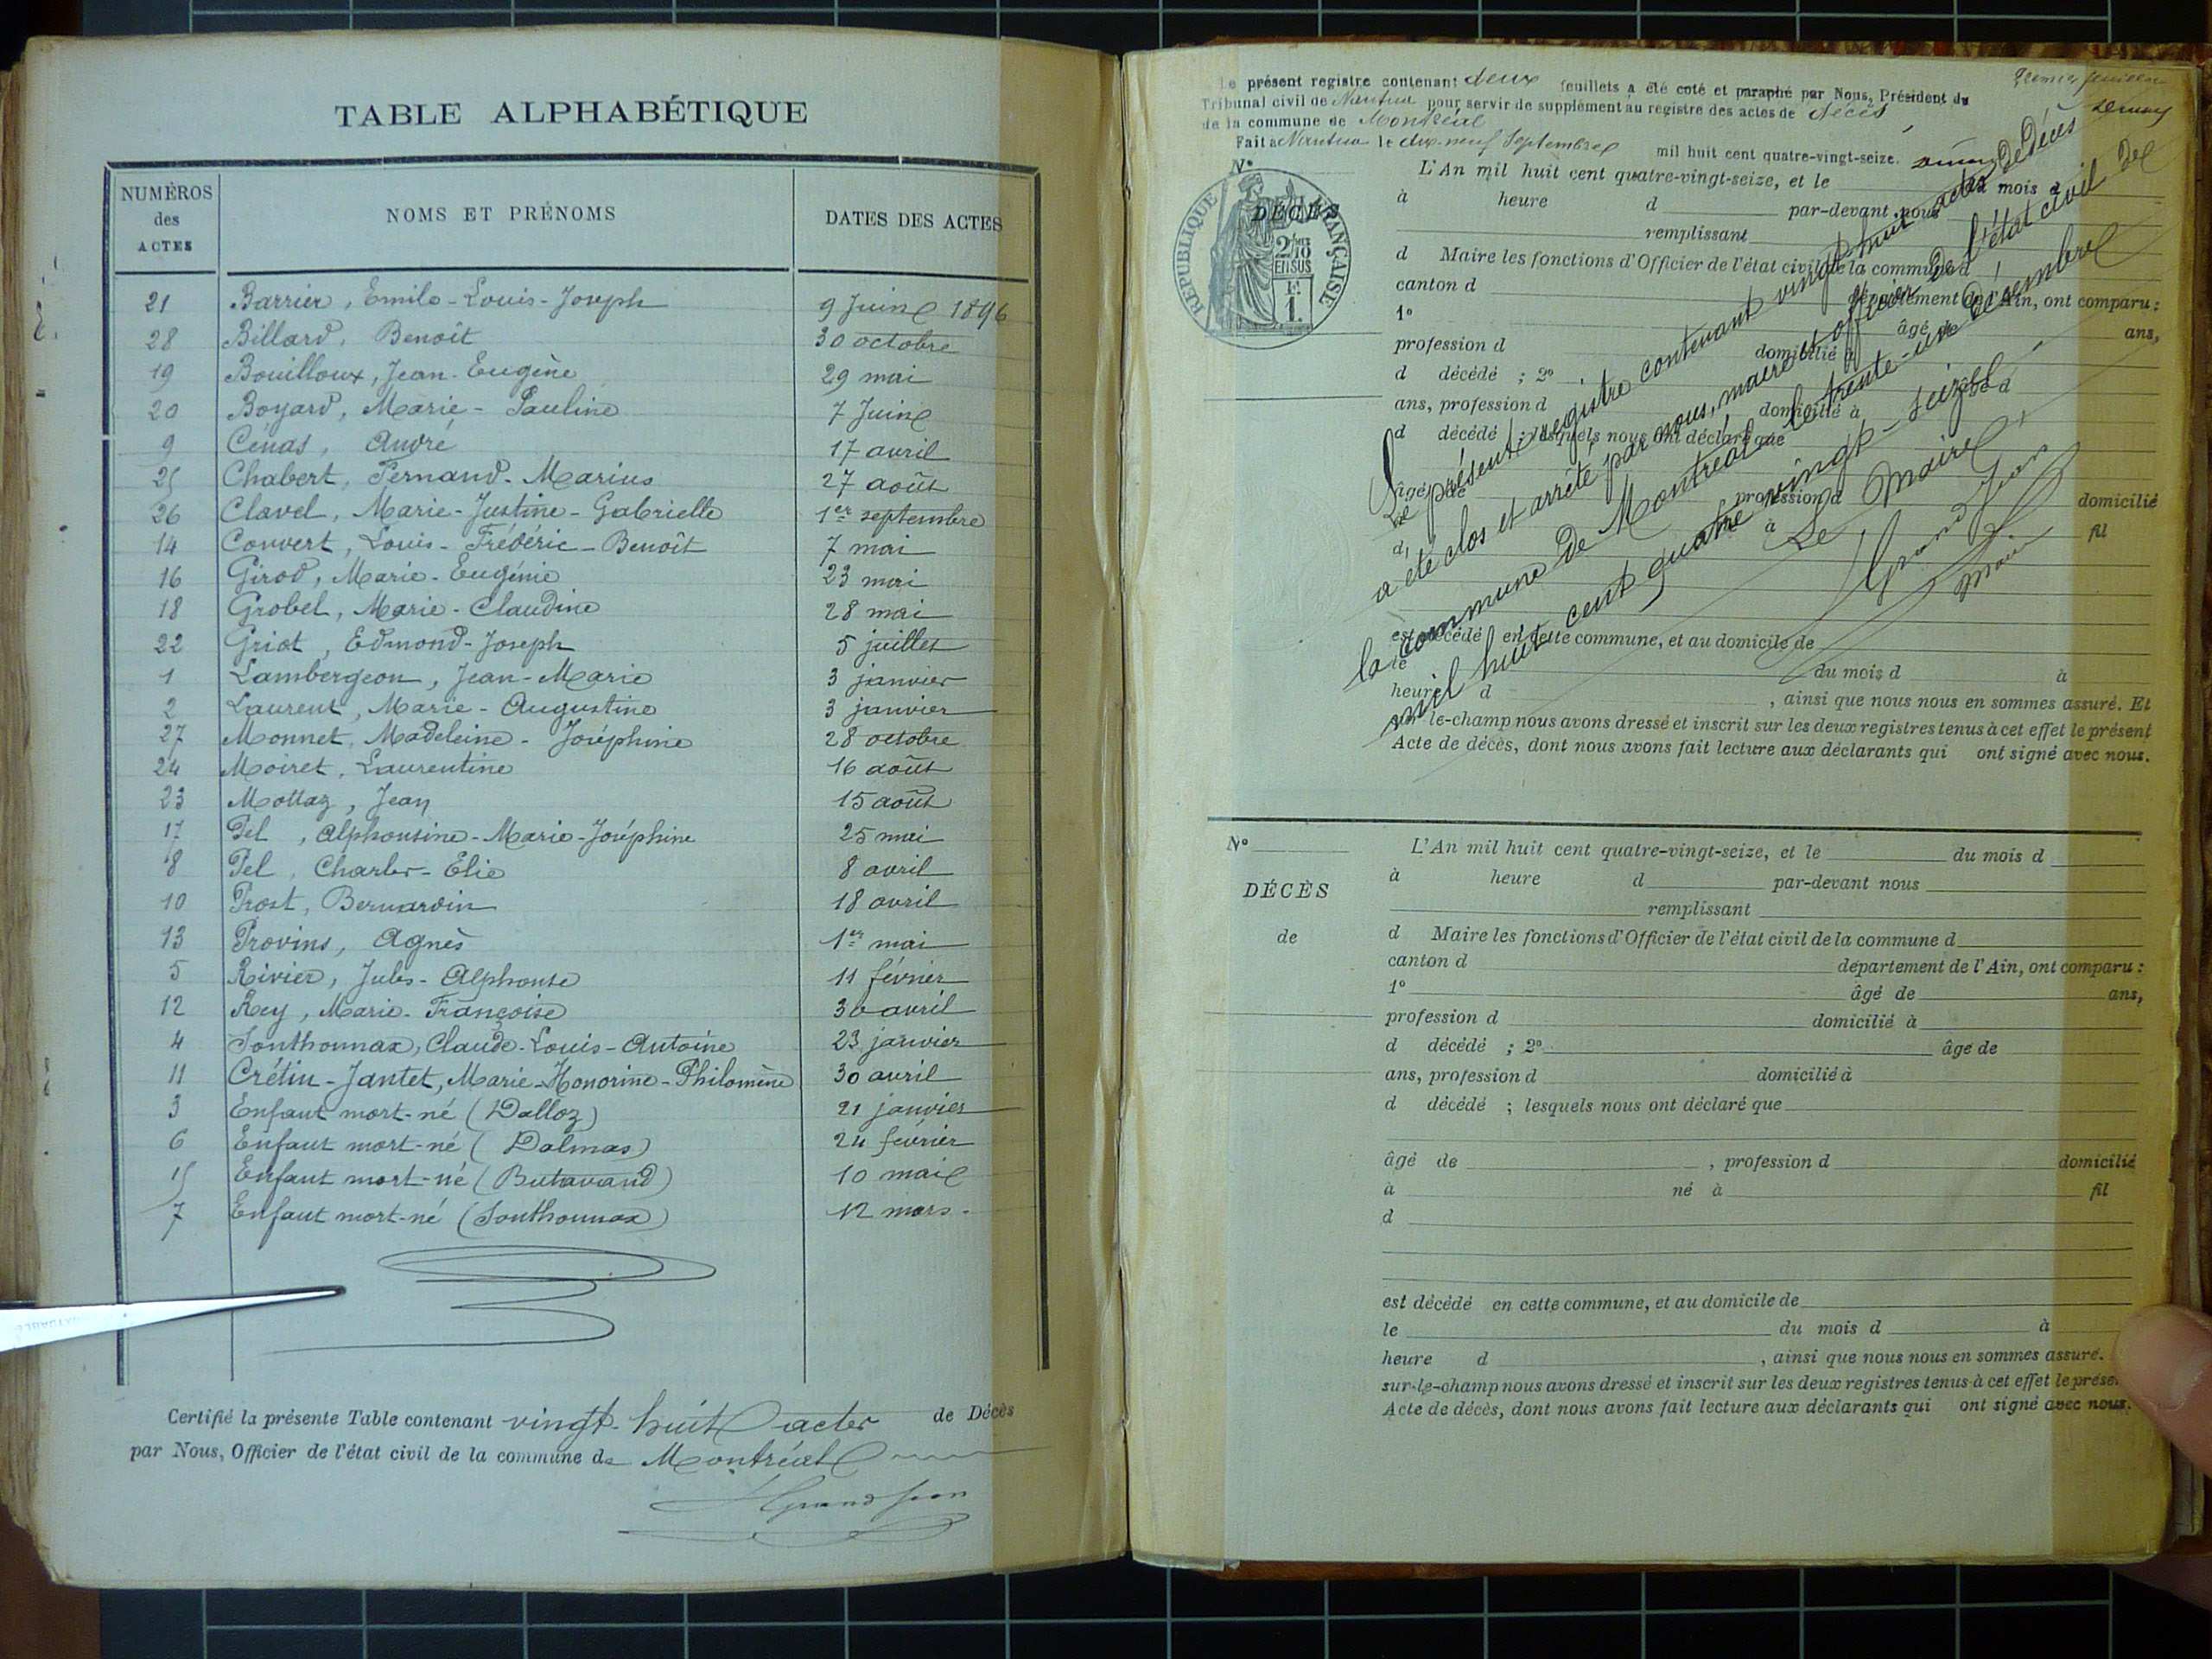 TABLE ALPHABÉTIQUE
NUMÉROS des ACTES
NOMS ET PRÉNOMS
DATES DES ACTES
21 Barrier, Emile-Louis-Joseph 9 Juin 1896
28 Billard, Benoît 30 octobre
19 Bouilloux, Jean-Eugène 29 mai
20 Boyard, Marie-Pauline 7 Juin
9 Cénas, André 17 avril
25 Chabert, Fernand-Marius 27 août
26 Clavel, Marie-Justine-Gabrielle 1er septembre
14 Convert, Louis-Frédéric-Benoît 7 mai
16 Girod, Marie-Eugénie 23 mai
18 Grobel, Marie-Claudine 28 mai
22 Griot, Edmond-Joseph 5 juillet
1 Lambergeon, Jean-Marie 3 janvier
2 Laurent, Marie-Augustine 3 janvier
27 Monnet, Madeleine-Joséphine 28 octobre
24 Moiret, Laurentine 16 août
23 Mottaz, Jean 15 août
17 Pel, Alphonsine-Marie-Joséphine 25 mai
8 Pel, Charles-Elie 8 avril
10 Prost, Bernardin 18 avril
13 Provins, Agnès 1er mai
5 Rivier, Jules-Alphonse 11 février
12 Rey, Marie-Françoise 30 avril
4 Sonthonnax, Claude-Louis-Antoine 23 janvier
11 Crétin-Jantet, Marie-Honorine-Philomène 30 avril
3 Enfant mort-né (Dalloz) 21 janvier
6 Enfant mort-né (Dalmas) 24 février
15 Enfant mort-né (Butavand) 10 mai
7 Enfant mort-né (Sonthonnax) 12 mars.
Certifié la présente Table contenant vingt-huit actes de Décès
par Nous, Officier de l'état civil de la commune de Montréal
Grandjean
Le présent registre contenant deux feuillets a été coté et paraphé par Nous, Président du
Tribunal civil de Nantua pour servir de supplément au registre des actes de décès
de la commune de Montréal
Fait à Nantua le dix-neuf Septembre mil huit cent quatre-vingt-seize.
N°
DÉCÈS
RÉPUBLIQUE FRANÇAISE
2/10 EN SUS
1 F.
L'An mil huit cent quatre-vingt-seize, et le du mois d
à heure d par-devant nous
remplissant
d Maire les fonctions d'Officier de l'état civil de la commune d
canton d département de l'Ain, ont comparu :
1° âgé de ans,
profession d domicilié à
d décédé ; 2° âgé d
ans, profession d domicilié à
d décédé ; lesquels nous ont déclaré que
âgé de profession d domicilié
à fil
d
est décédé en cette commune, et au domicile de
le du mois d à
heure d , ainsi que nous nous en sommes assuré. Et
sur-le-champ nous avons dressé et inscrit sur les deux registres tenus à cet effet le présent
Acte de décès, dont nous avons fait lecture aux déclarants qui ont signé avec nous.
Le présent registre contenant vingt-huit actes de Décès
a été clos et arrêté par nous, maire et officier de l'état civil de
la commune de Montréal le trente-un décembre
mil huit cent quatre vingt-seize.
Le Maire,
Grandjean
Maire
N°
DÉCÈS
de
L'An mil huit cent quatre-vingt-seize, et le du mois d
à heure d par-devant nous
remplissant
d Maire les fonctions d'Officier de l'état civil de la commune d
canton d département de l'Ain, ont comparu :
1° âgé de ans,
profession d domicilié à
d décédé ; 2° âge de
ans, profession d domicilié à
d décédé ; lesquels nous ont déclaré que
âgé de , profession d domicilié
à né à fil
d
est décédé en cette commune, et au domicile de
le du mois d à
heure d , ainsi que nous nous en sommes assuré.
sur-le-champ nous avons dressé et inscrit sur les deux registres tenus à cet effet le prése
Acte de décès, dont nous avons fait lecture aux déclarants qui ont signé avec nous.